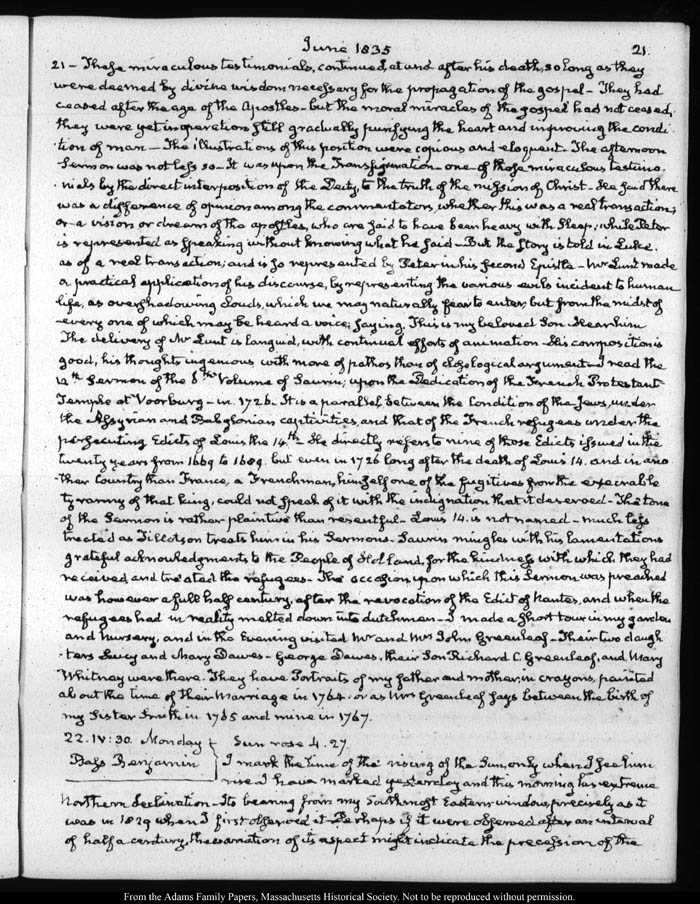 June 1835
21.
21 - These miraculous testimonials, continued, at and after his death, so long as they
were deemed by divine wisdom necessary for the propagation of the gospel - They had
ceased after the age of the Apostles - but the moral miracles of the gospel had not ceased,
they were yet in operation still gradually purifying the heart and improving the condi-
tion of man - The illustrations of this position were copious and eloquent. The afternoon
Sermon was not less so - It was upon the Transfiguration - one of those miraculous testimo-
nials by the direct interposition of the Deity, to the truth of the mission of Christ. He said there
was a difference of opinion among the commentators, whether this was a real transaction;
or a vision or dream of the apostles, who are said to have been heavy with Sleep; while Peter
is represented as speaking without knowing what he said - But the story is told in Luke.
as of a real transaction; and is so represented by Peter in his second Epistle - Mr Lunt made
a practical application of his discourse, by representing the various evils incident to human
life, as overshadowing clouds, which we may naturally fear to enter, but from the midst of
every one of which may be heard a voice, saying. This is my beloved Son. Hear him
The delivery of Mr Lunt is languid, with continual efforts of animation. His composition is
good, his thoughts ingenious with more of pathos than of logical argument - I read the
Sermon of the 8th Volume of Saurin; upon the Dedication of the French Protestant
Temple at Voorburg - in 1726. It is a parallel between the Condition of the Jews, under
the Assyrian and Babylonian captivities, and that of the French refugees under the
persecuting Edicts of Louis the 14th. He directly refers to nine of those Edicts issued in the
twenty years from 1669 to 1689. but even in 1726 long after the death of Louis 14. and in ano-
ther Country than France, a Frenchman, himself one of the fugitives from the execrable
tyranny of that king, could not speak of it with the indignation that it deserved - The tone
of the Sermon is rather plaintive than resentful - Louis 14. is not named - much less
treated as Tillotson treats him in his Sermons. Saurin mingles with his lamentations
grateful acknowledgments to the People of Holland, for the kindness with which they had
received and treated the refugees - The occasion upon which this Sermon was preached
was however a full half century, after the revocation of the Edict of Nantes, and when the
refugees had in reality melted down into dutchmen - I made a short tour in my garden
and Nursery, and in the Evening visited Mr and Mrs John Greenleaf - Their two daugh-
ters Lucy and Mary Dawes - George Dawes, their Son Richard C. Greenleaf, and Mary
Whitney were there. They have Portraits of my father and mother, in crayons, painted
about the time of their Marriage in 1764. or as Mrs Greenleaf says between the birth of
my Sister Smith in 1765 and mine in 1767.
22. IV:30. Monday Sun rose 4.27
Bass Benjamin I mark the time of the rising of the Sun, only when I see him
rise. I have marked yesterday and this morning his extreme
Northern Declination - Its bearing from my Southmost Eastern window, precisely as it
was in 1829 when I first observed it - Perhaps if it were observed after an interval
of half a century, the variation of its aspect might indicate the precession of the
From the Adams Family Papers, Massachusetts Historical Society. Not to be reproduced without permission.